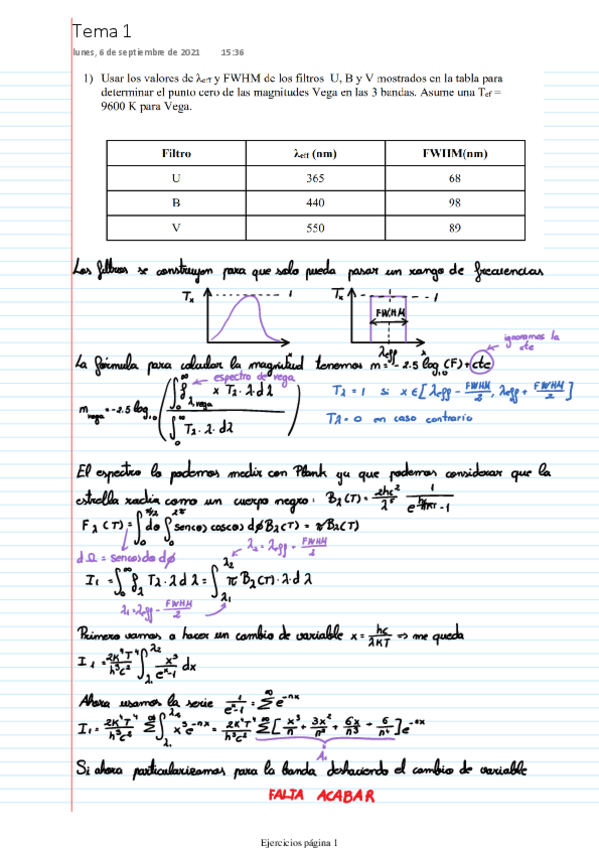 Tema 1
lunes, 6 de septiembre de 2021 15:36
1) Usar los valores de λeff y FWHM de los filtros U, B y V mostrados en la tabla para
determinar el punto cero de las magnitudes Vega en las 3 bandas. Asume una Tef =
9600 K para Vega.
Filtro λeff (nm) FWHM(nm)
U 365 68
B 440 98
V 550 89
Los filtros se construyen para que solo pueda pasar un rango de frecuencias
Tx 1 Tx 1
FWHM
λeff
ignoramos la cte
La fórmula para calcular la magnitud tenemos m = -2.5 log10 (F) + cte
espectro de vega
m vega = -2.5 log10 ( ∫0^∞ fλ vega × Tλ · λ dλ / ∫0^∞ Tλ · λ · dλ )
Tλ = 1 si x ∈ [λeff - FWHM/2, λeff + FWHM/2]
Tλ = 0 en caso contrario
El espectro lo podemos medir con Plank ya que podemos considerar que la
estrella radia como un cuerpo negro: Bλ(T) = 2hc²/λ⁵ 1/(e^(hc/λKT) - 1)
Fλ(T) = ∫0^π/2 dθ ∫0^2π senθ cosθ dφ Bλ(T) = π Bλ(T)
dΩ = senθ dθ dφ
λ2 = λeff + FWHM/2
I1 = ∫0^∞ fλ Tλ · λ dλ = ∫λ1^λ2 π Bλ(T) · λ · dλ
λ1 = λeff - FWHM/2
Primero vamos a hacer un cambio de variable x = hc/λKT => me queda
I1 = 2K⁴T⁴/h³c² ∫λ1^λ2 x³/(e^x - 1) dx
Ahora usamos la serie 1/(e^x - 1) = Σ e^-nx
I1 = 2K⁴T⁴/h³c² Σ ∫λ1^λ2 x³ e^-nx = 2K⁴T⁴/h³c² Σ [x³/n + 3x²/n² + 6x/n³ + 6/n⁴] e^-nx
Si ahora particularizamos para la banda deshaciendo el cambio de variable
FALTA ACABAR
Ejercicios página 1